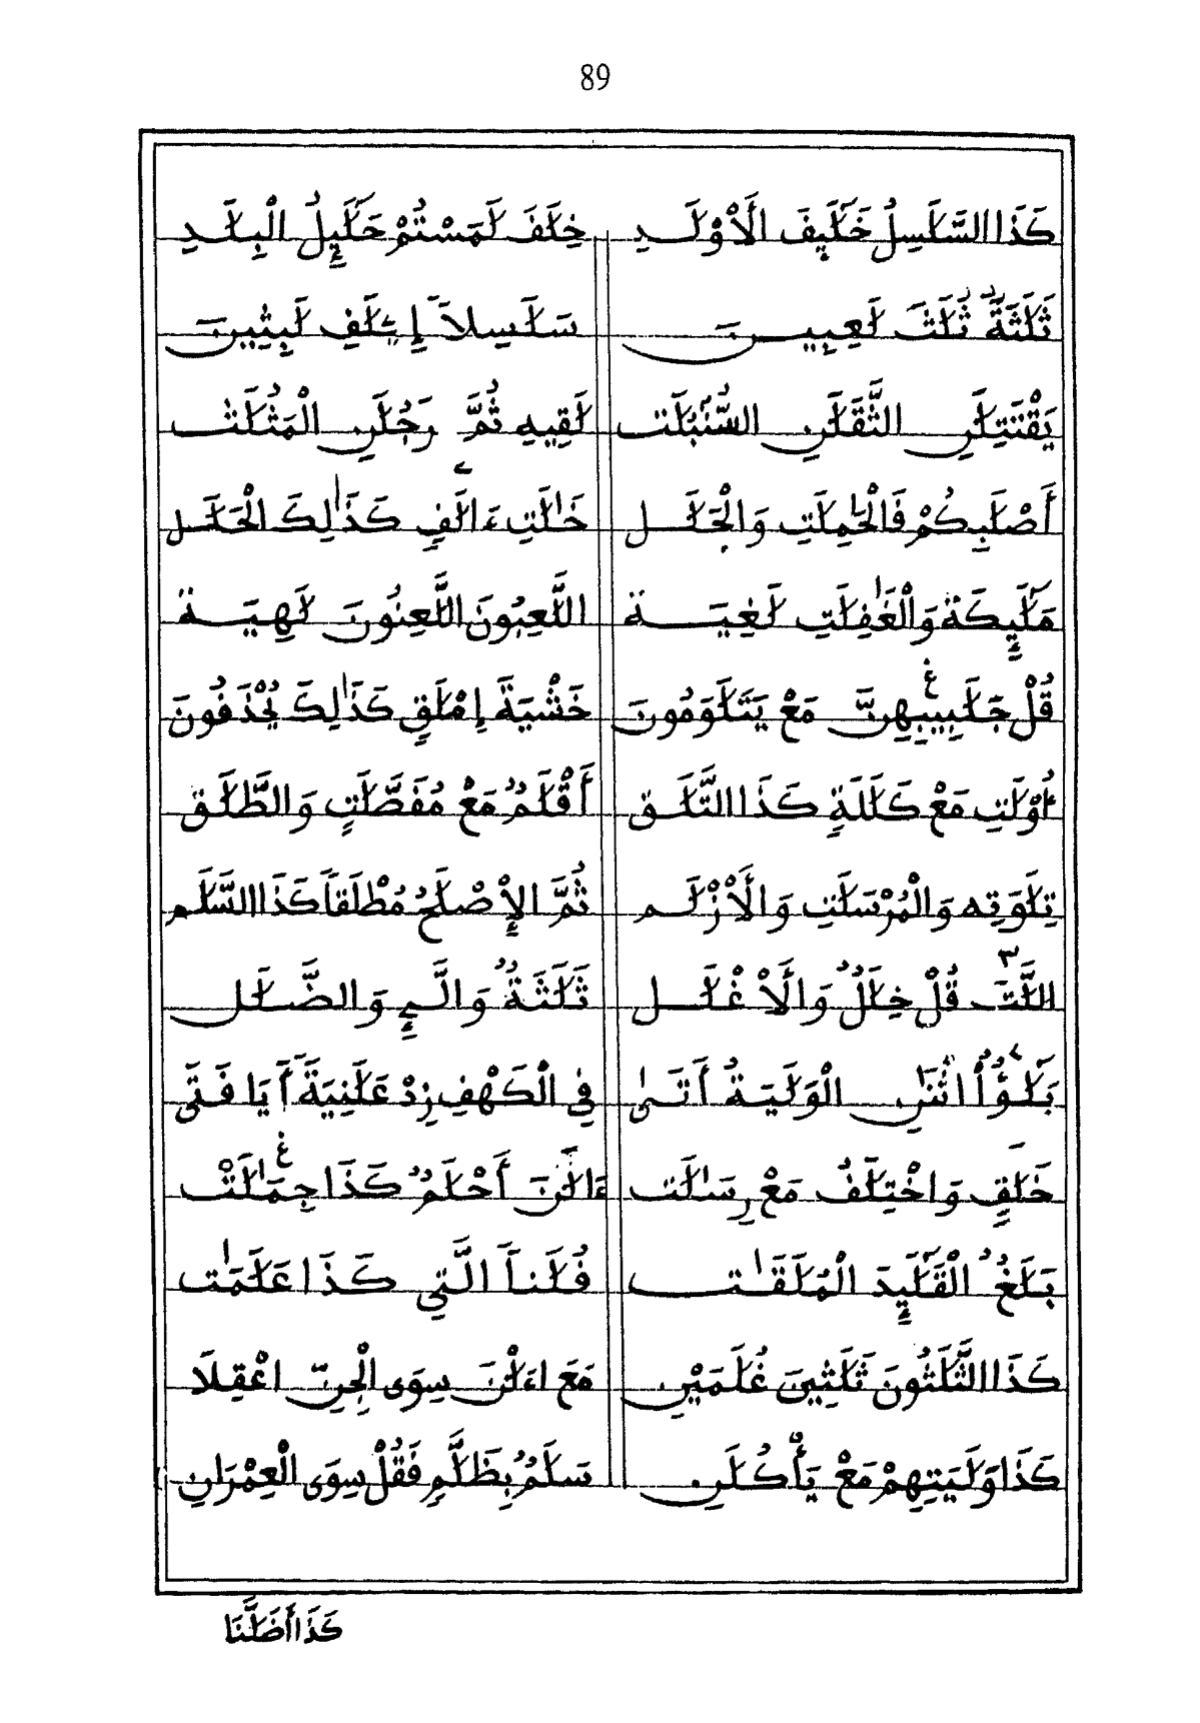 89
كَذَا السَّلَسِلُ خَلَٰٓئِفَ الَأوْلَـدِ خِلَفَ لَمَسْتُمْ حَلَٰٓئِلُ الْبِلَـدِ
ثَلَثَةٌ ثُلَثَ لَعِبِيـنَ سَلَسِلاَ إِۦلَفِ لَبِثِينَ
يَقْتَتِلَنِ الثَّقَلَنِ السُّنْبُلَت لَقِيهِ ثُمَّ رَجُلَنِ الْمَثُلَت
أَصْلَبِكُمْ فَالْحَٰمِلَتِ وَالْجَلَـل خَٰلَتِ ءَالَفٍ كَذَٰلِكَ الْحَلَـل
مَلَٰٓئِكَةٌ وَالْغَٰفِلَتِ لَغِيَـة اللَّعِبُونَ اللَّعِنُونَ لَهِيَـة
قُلْ جَلَبِيبِهِنَّ مَعْ يَتَلَوَمُونَ خَشْيَةَ إِمْلَقٍ كَذَٰلِكَ يُحْذَفُونَ
أُوْلَتِ مَعْ كَلَلَةٍ كَذَا التَّلَـق أَقْلَمٌ مَعْ مُفَصَّلَتٍ وَالطَّلَق
تِلَوَتِه وَالْمُرْسَلَتِ وَالَأزْلَـم ثُمَّ الإِصْلَحُ مُطْلَقاً كَذَا السَّلَم
اللَّتَ قُلْ خِلَلٌ وَالَأغْلَـل ثَلَثَةٌ وَالَّـئِ وَالضَّلَل
بَلَٰٓؤُاْ اثْنَنِ الْوَلَيَةُ أَتَىٰ فِي الْكَهْفِ زِدْ عَلَنِيَةً أَيَا فَتَى
خَلَقٍ وَاخْتِلَفٌ مَعْ رِسَٰلَت ءَالَنَ أَحْلَمٌ كَذَا جِمَٰلَتْ
بَلَغٌ الْقَلَٰٓئِدَ الْمُلَقَٰـت فُلَناً الَّتِي كَذَا عَلَمَٰت
كَذَا الثَّلَثُونَ ثَلَثِينَ غُلَمَيْنِ مَعَ اءَلْنَ سِوَى الْجِنِّ اعْقِلَا
كَذَا وَلَيَتِهِمْ مَعْ يَأْكُلَنِ سَلَمٌ بِظَلَّمٍ فَقُلْ سِوَى الْعِمْرَانِ
كَذَا أَضَلَّنَا